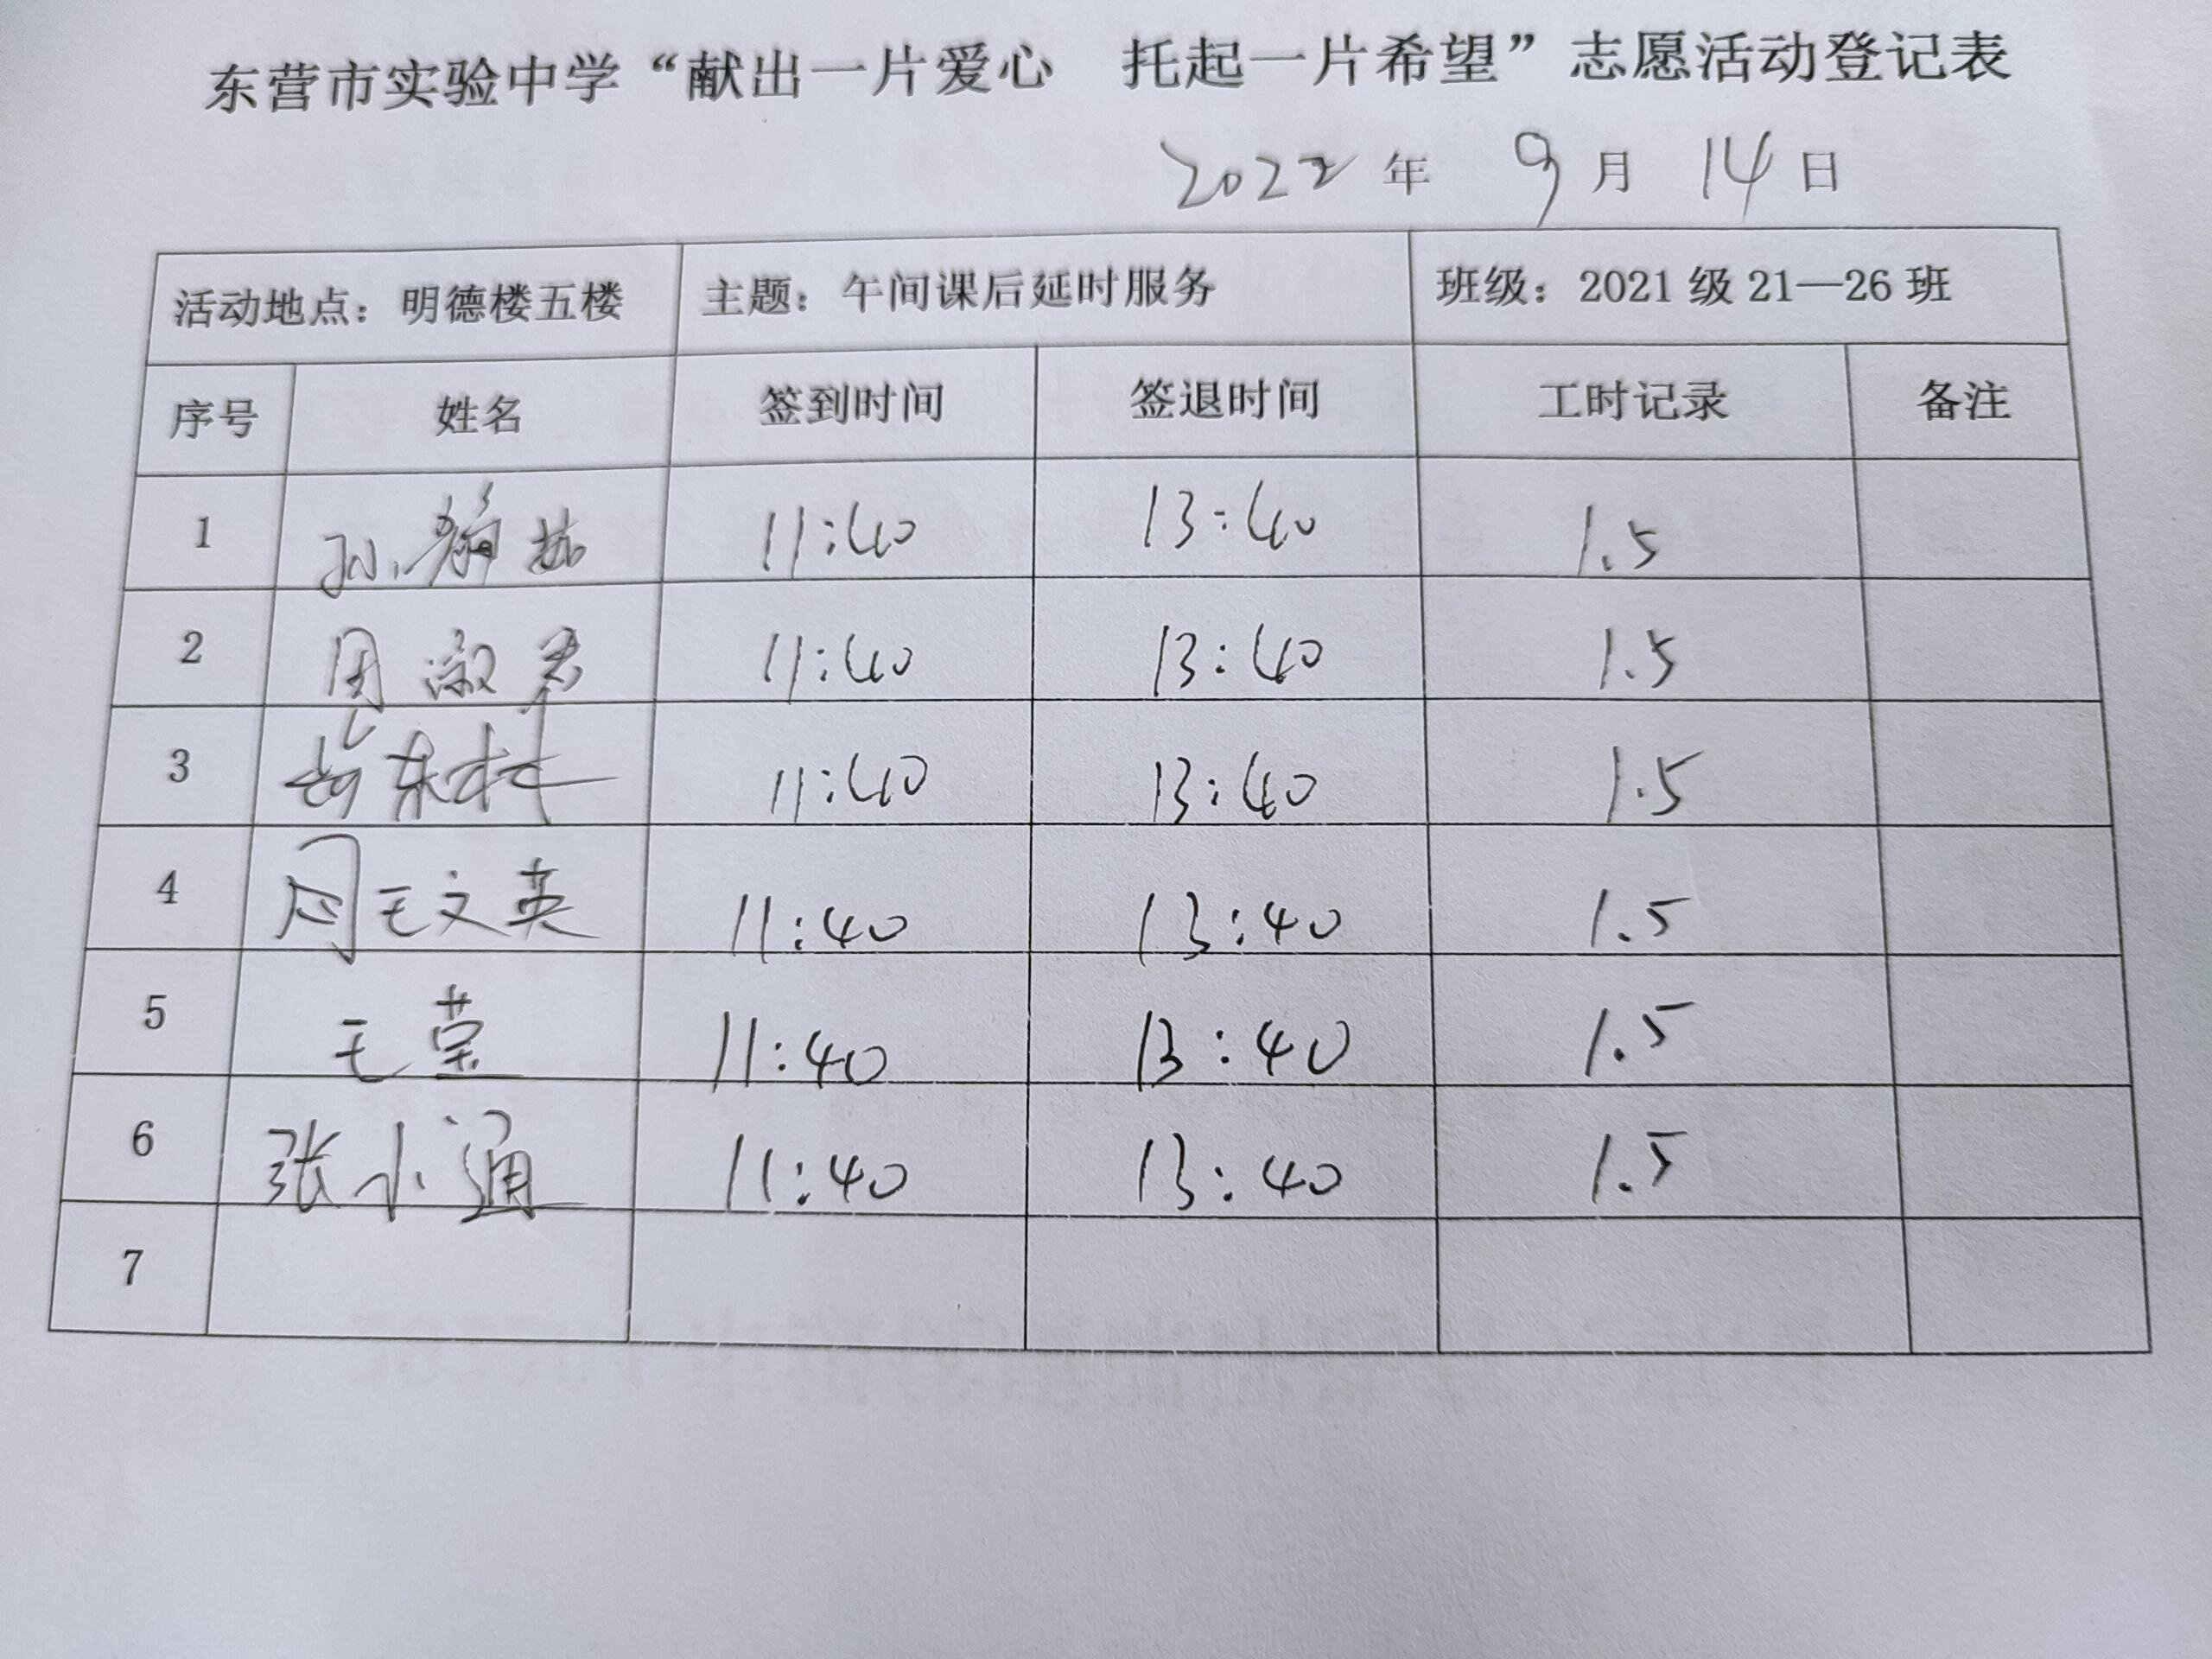 东营市实验中学“献出一片爱心 托起一片希望”志愿活动登记表
2022 年 9 月 14 日
活动地点：明德楼五楼 主题：午间课后延时服务 班级：2021 级 21—26 班
序号 姓名 签到时间 签退时间 工时记录 备注
1 孙 11:40 13:40 1.5
2 周淑君 11:40 13:40 1.5
3 11:40 13:40 1.5
4 周文英 11:40 13:40 1.5
5 王莹 11:40 13:40 1.5
6 张小通 11:40 13:40 1.5
7